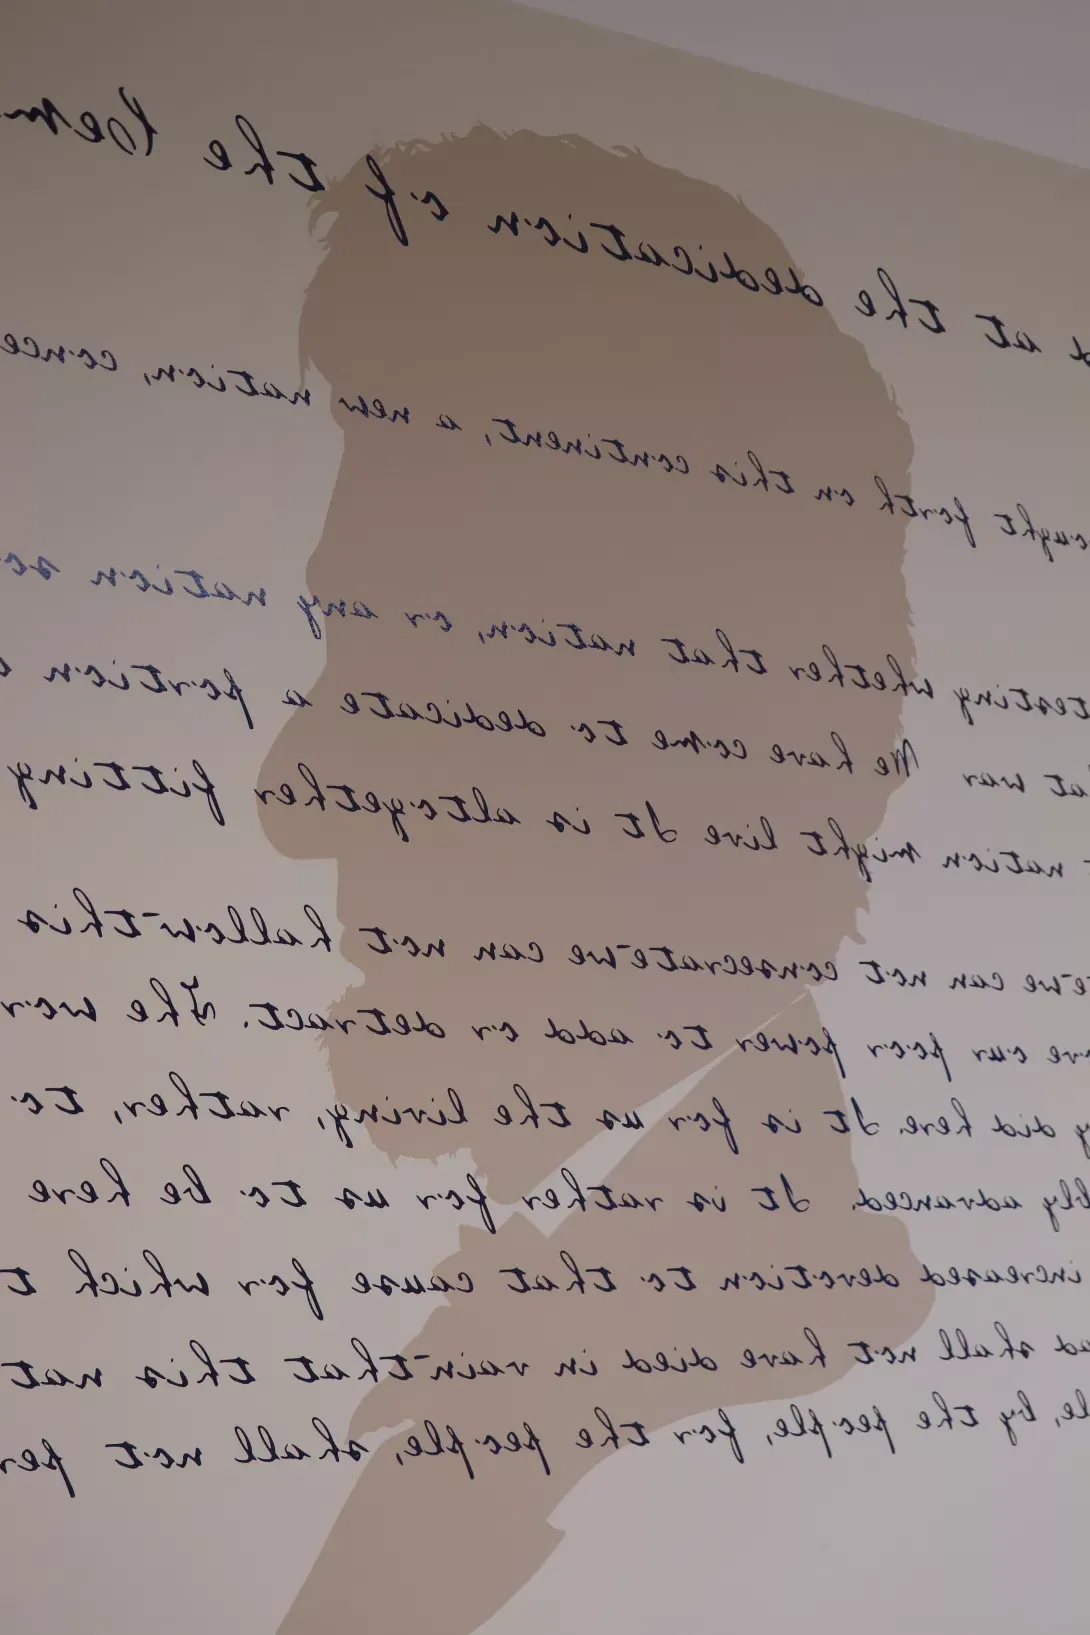 at the dedication of the
ought forth on this continent, a new nation, conce
testing whether that nation, or any nation so
at war We have come to dedicate a portion o
nation might live It is altogether fitting
te~we can not consecrate~we can not hallow~this
ove our poor power to add or detract. The wor
y did here. It is for us the living, rather, to
bly advanced. It is rather for us to be here
increased devotion to that cause for which t
ad shall not have died in vain~that this nat
le, by the people, for the people, shall not per